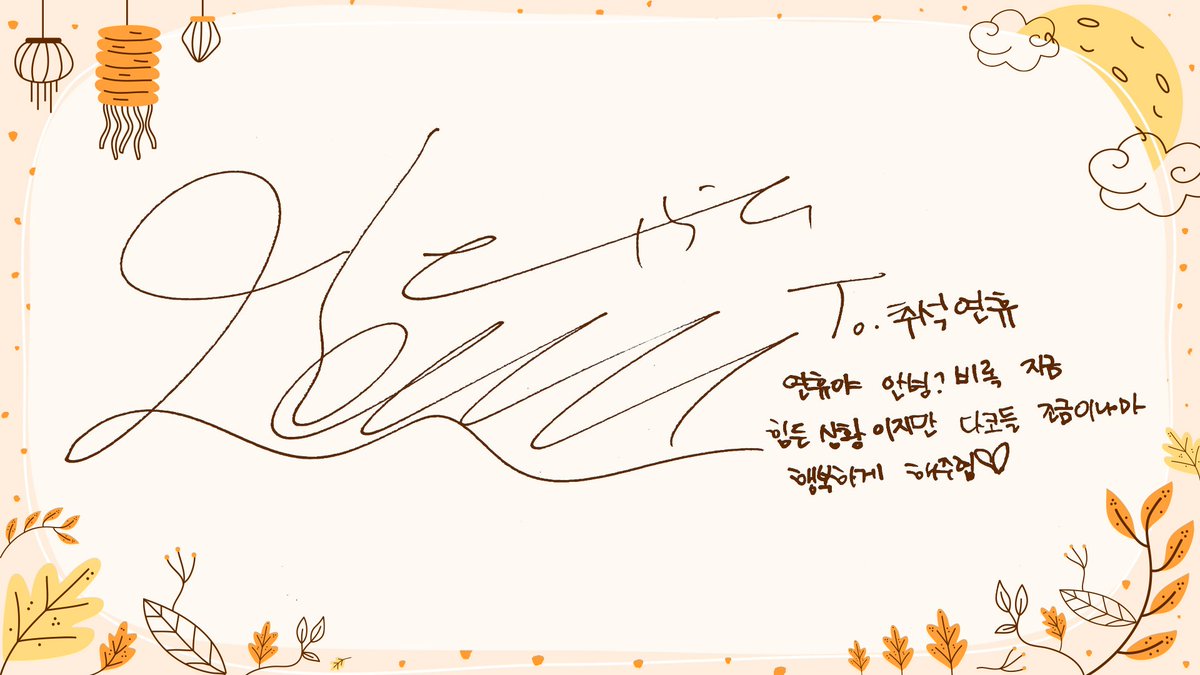 To. 추석 연휴
연휴야 안녕? 비록 지금
힘든 상황이지만 다코들 조금이나마
행복하게 해주렴♡